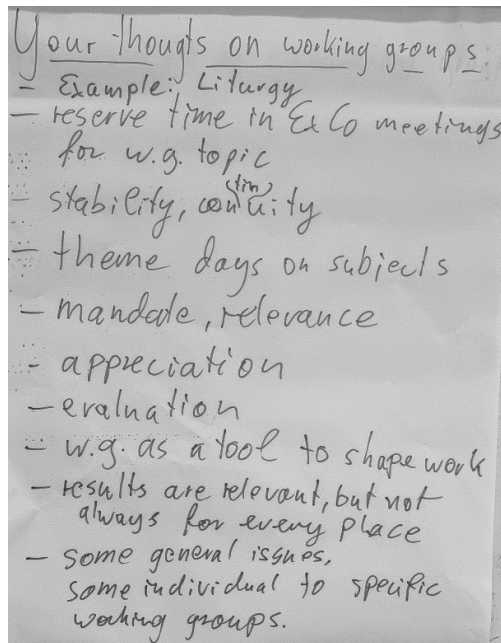 Your thougts on working groups:
- Example: Liturgy
- reserve time in ExCo meetings
for w.g. topic
- stability, continuity
- theme days on subjects
- mandate, relevance
- appreciation
- evaluation
- w.g. as a tool to shape work
- results are relevant, but not
always for every place
- some general issues,
some individual to specific
working groups.